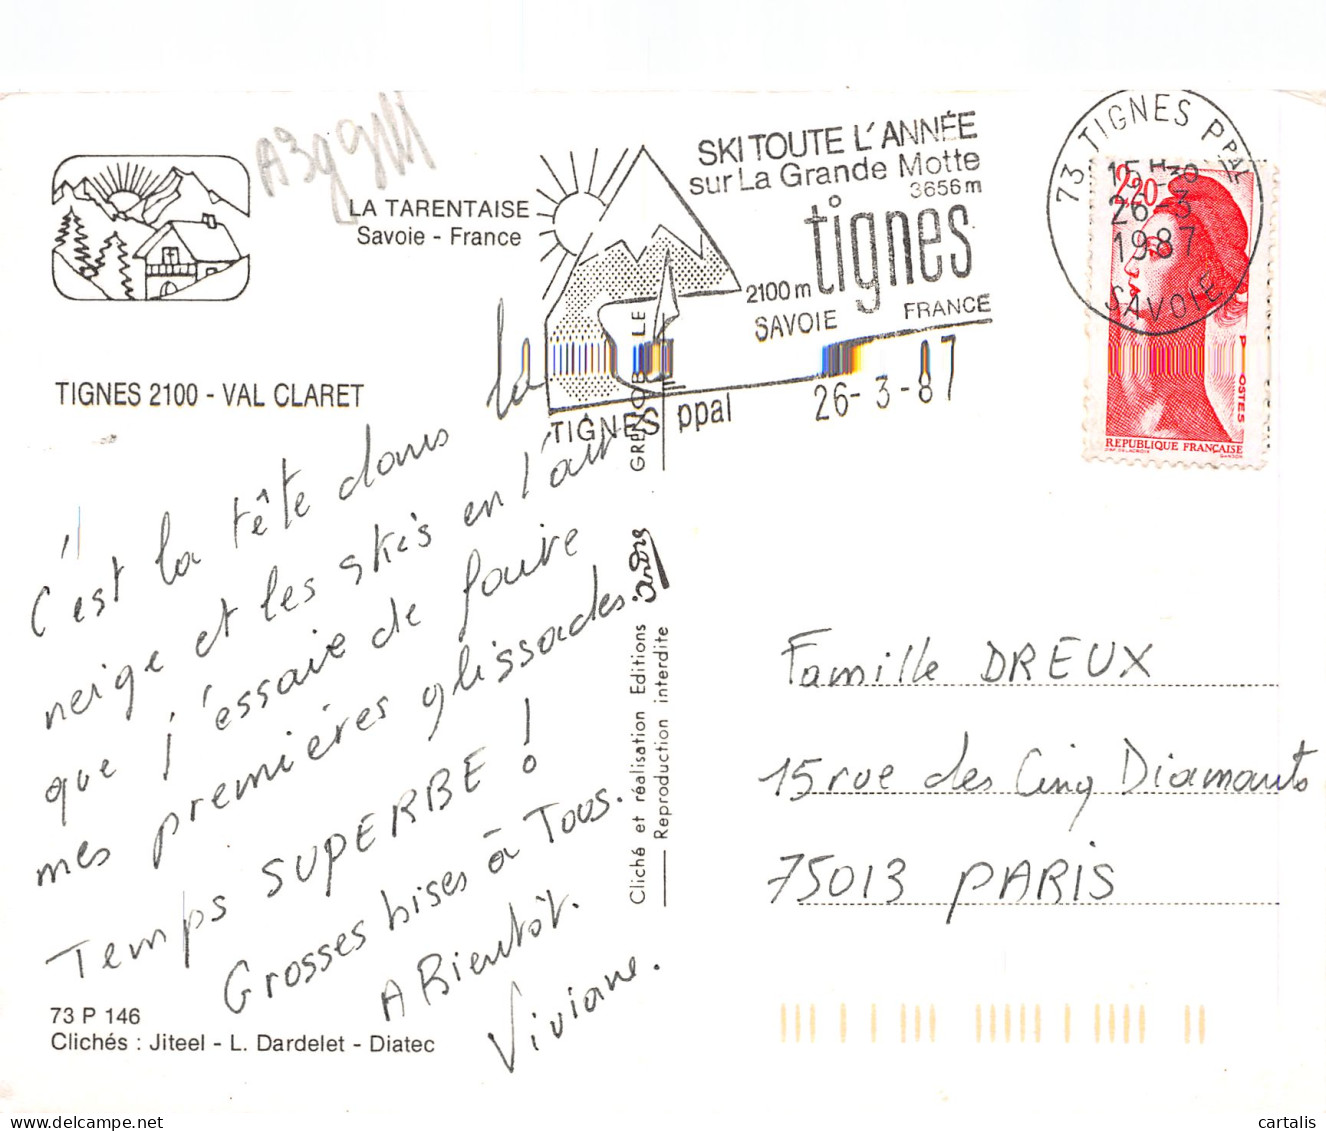 A3ggM
LA TARENTAISE
Savoie - France
TIGNES 2100 - VAL CLARET
SKI TOUTE L'ANNÉE
sur La Grande Motte
3656 m
tignes
2100 m
SAVOIE FRANCE
TIGNES ppal 26-3-87
73 TIGNES PPAL
15H30
26-3
1987
SAVOIE
2,20
POSTES
REPUBLIQUE FRANÇAISE
C'est la tête dans la
neige et les skis en l'air
que j'essaie de faire
mes premières glissades.
Temps SUPERBE !
Grosses bises à Tous.
A Bientôt.
Viviane.
GRENOBLE
Cliché et réalisation Editions andre
Reproduction interdite
Famille DREUX
15 rue des Cinq Diamants
75013 PARIS
73 P 146
Clichés : Jiteel - L. Dardelet - Diatec
cartalis